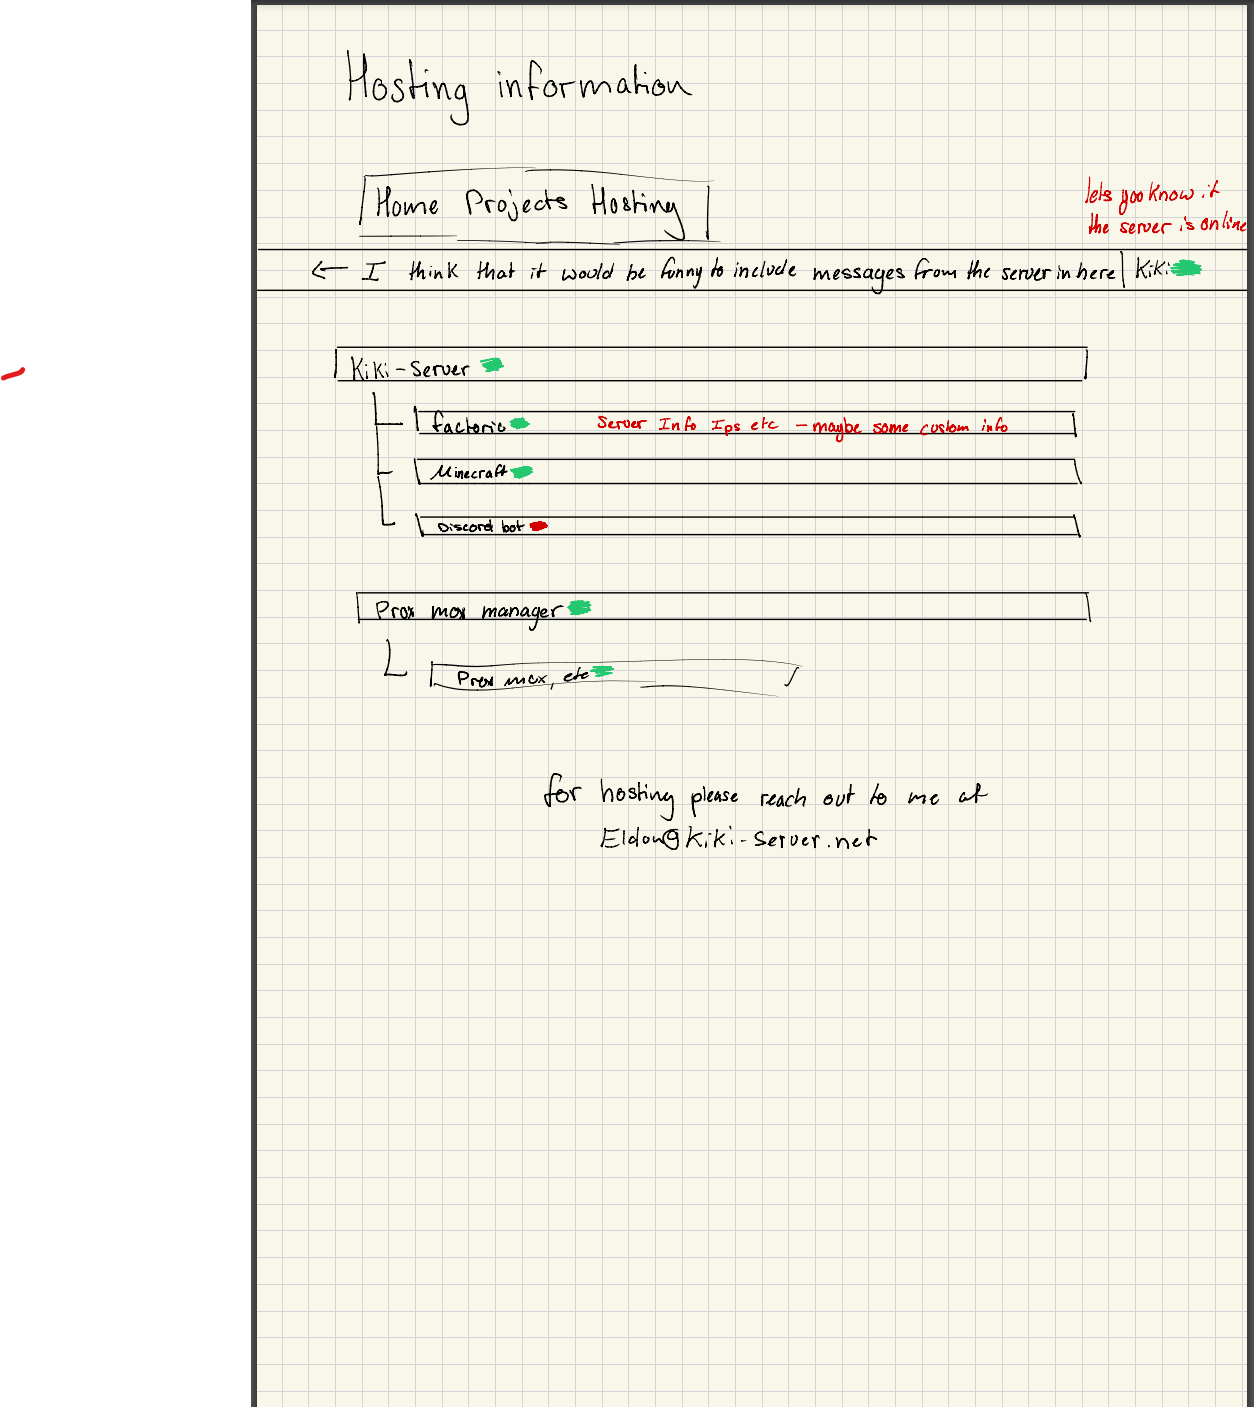 Hosting information
Home Projects Hosting
lets you know if
the server is online
← I think that it would be funny to include messages from the server in here | Kiki
Kiki-Server
factorio
Server Info Ips etc - maybe some custom info
Minecraft
Discord bot
Prox mox manager
Prox mox, etc
for hosting please reach out to me at
Eldon@Kiki-Server.net